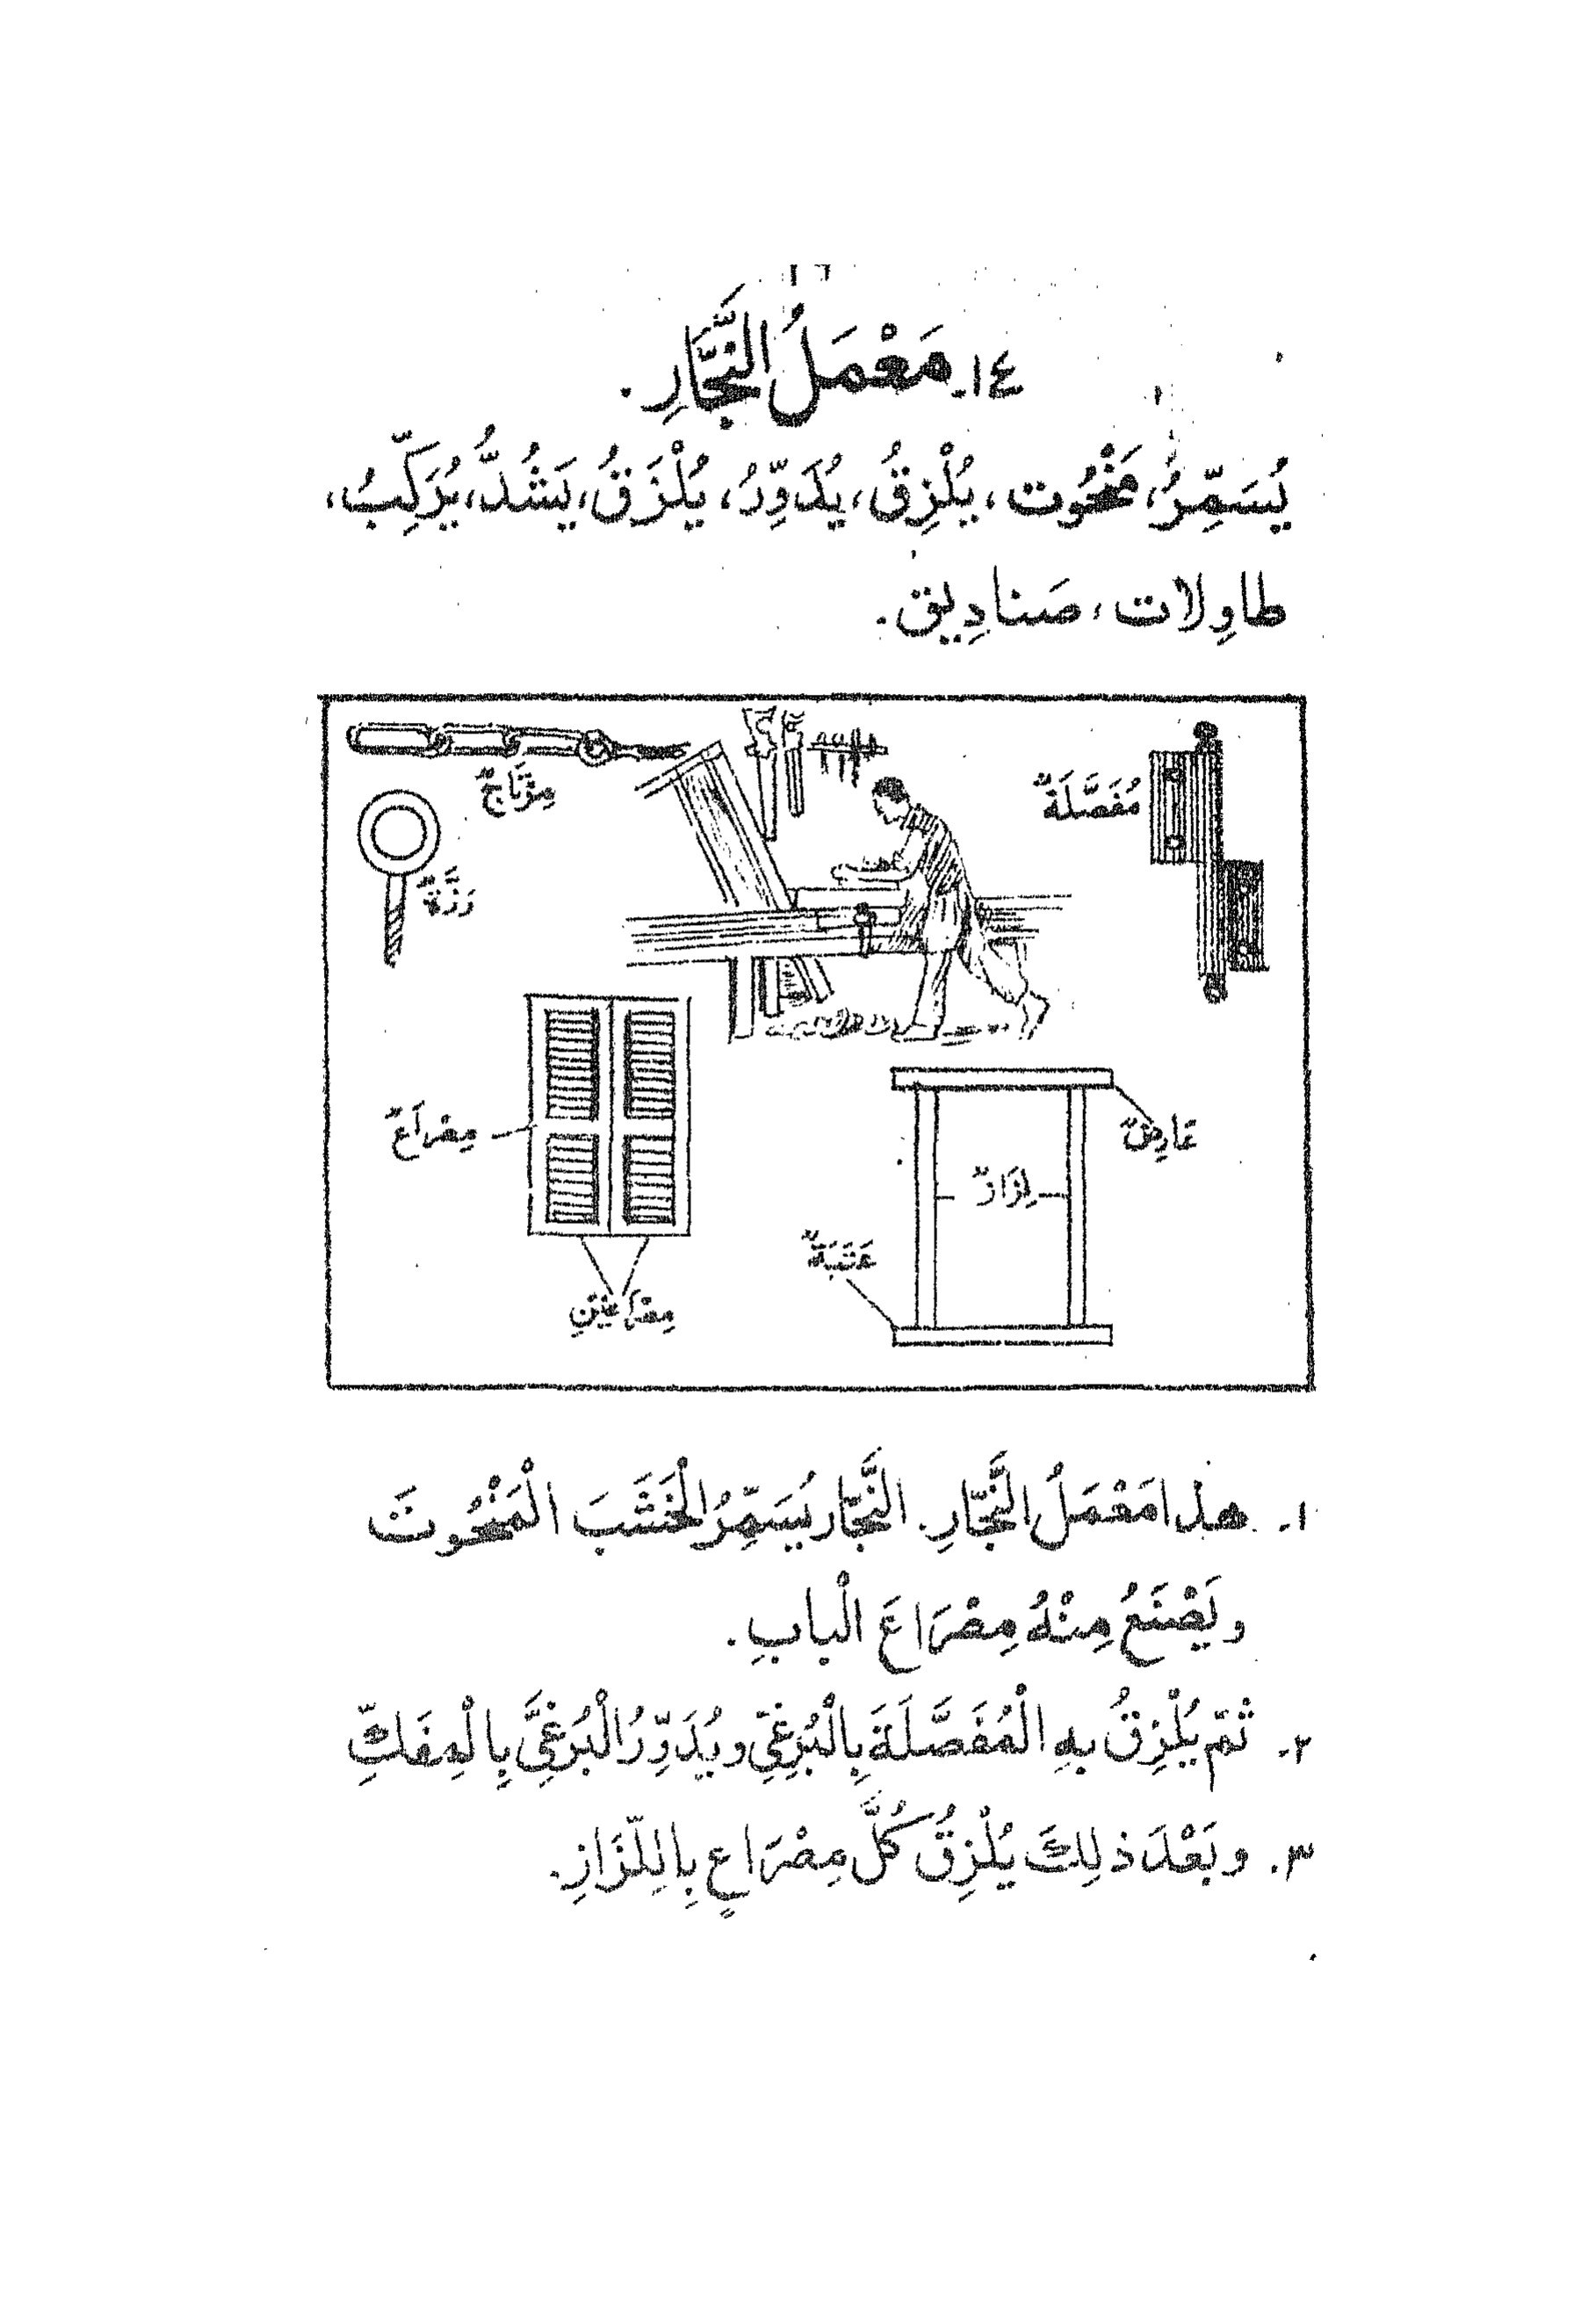 ١٤- مَعْمَلُ النَّجَّارِ.
يُسَمِّرُ، مَنْحُوت، يُلْزِقُ، يُدَوِّرُ، يُلْزَقُ، يَشُدُّ، يُرَكِّبُ،
طاوِلات، صَنادِيق.
مُفَصَّلَةٌ
مِزْتَاجٌ
رَزَّةٌ
مِصْرَاعٌ
عَارِضٌ
لِزَازٌ
عَتَبَةٌ
مِصْرَاعَيْنِ
١- هذا مَعْمَلُ النَّجَّارِ. النَّجَّار يُسَمِّرُ الْخَشَبَ الْمَنْحُوتَ
ويَصْنَعُ مِنْهُ مِصْرَاعَ الْبابِ.
٢- ثمّ يُلْزِقُ بهِ الْمُفَصَّلَةَ بِالْبُرْغِيِّ ويُدَوِّرُ الْبُرْغِيَّ بِالْمِفَكِّ
٣. وبَعْدَ ذلِكَ يُلْزِقُ كُلَّ مِصْرَاعٍ بِاللِّزَازِ.